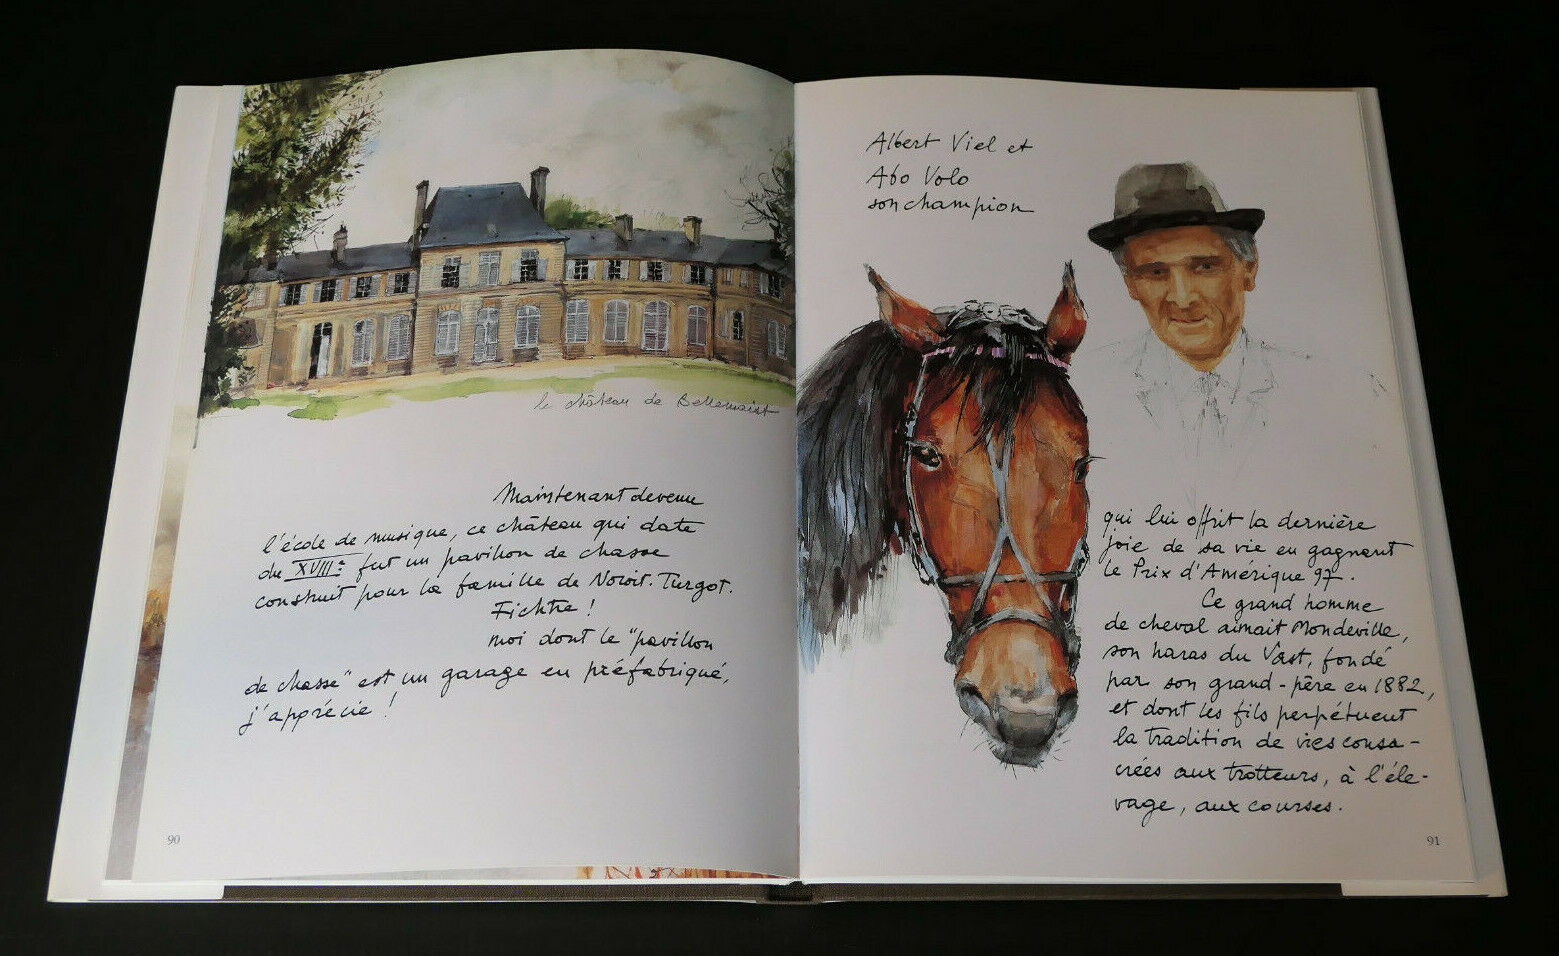 le château de Bellemaist
Maintenant devenu
l'école de musique, ce château qui date
du XVIIIe fut un pavillon de chasse
construit pour la famille de Turgot.
Fichtre !
moi dont le "pavillon
de chasse" est un garage en préfabriqué,
j'apprécie !
90
Albert Viel et
Abo Volo
son champion
qui lui offrit la dernière
joie de sa vie en gagnant
le Prix d'Amérique 97.
Ce grand homme
de cheval aimait Mondeville,
son haras du Vast, fondé
par son grand-père en 1882,
et dont les fils perpétuent
la tradition de vies consa-
crées aux trotteurs, à l'éle-
vage, aux courses.
91